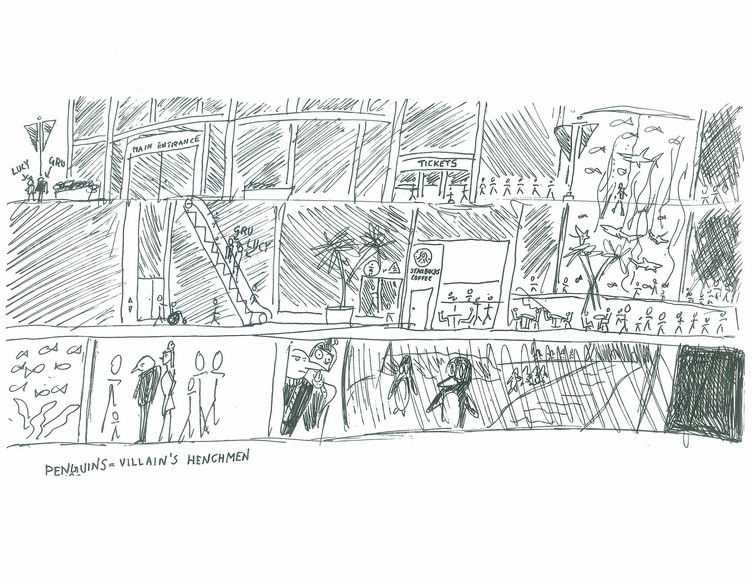 MAIN ENTRANCE
LUCY
GRU
TICKETS
GRU
LUCY
STARBUCKS
COFFEE
PENGUINS = VILLAIN'S HENCHMEN